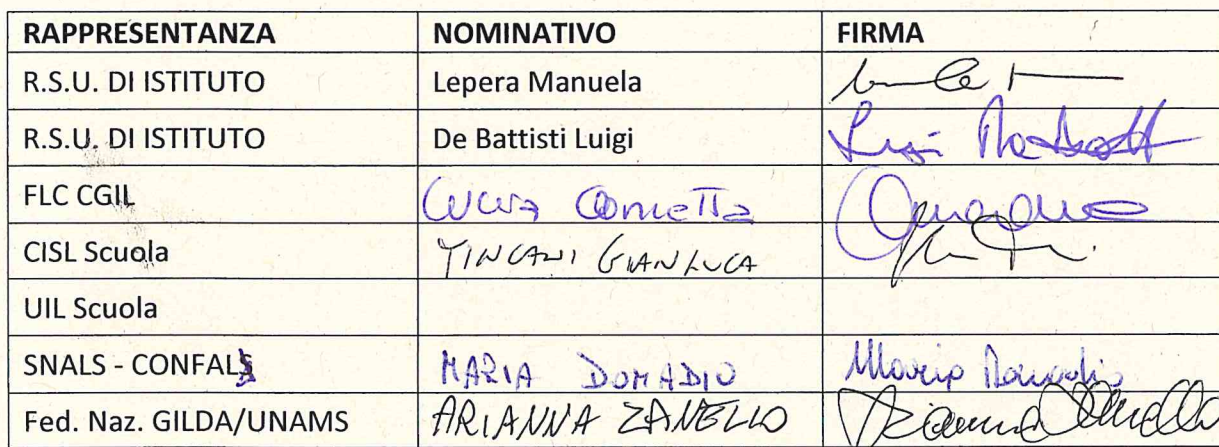 RAPPRESENTANZA NOMINATIVO FIRMA
R.S.U. DI ISTITUTO Lepera Manuela
R.S.U. DI ISTITUTO De Battisti Luigi Luigi
FLC CGIL Cometta
CISL Scuola GIANLUCA
UIL Scuola
SNALS - CONFALS MARIA DONADIO Maria Donadio
Fed. Naz. GILDA/UNAMS ARIANNA ZANELLO Arianna Zanello